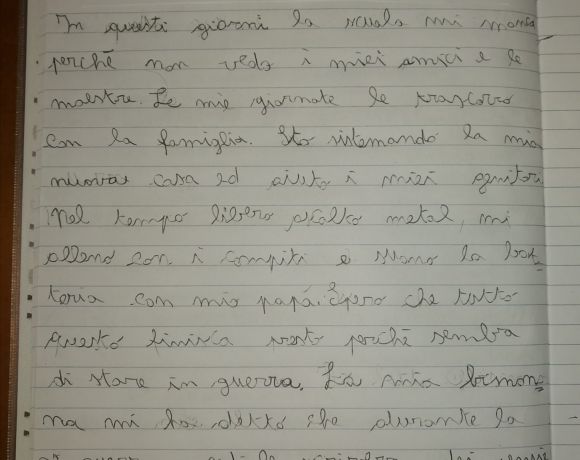 In questi giorni la scuola mi manca
perchè non vedo i miei amici e le
maestre. Le mie giornate le trascorro
con la famiglia. Sto sistemando la mia
nuova casa ed aiuto i miei genitori.
Nel tempo libero ascolto metal, mi
alleno con i compiti e suono la bat=
teria con mio papà. Spero che tutto
questo finisca presto perchè sembra
di stare in guerra. La mia bisnon=
na mi ha detto che durante la